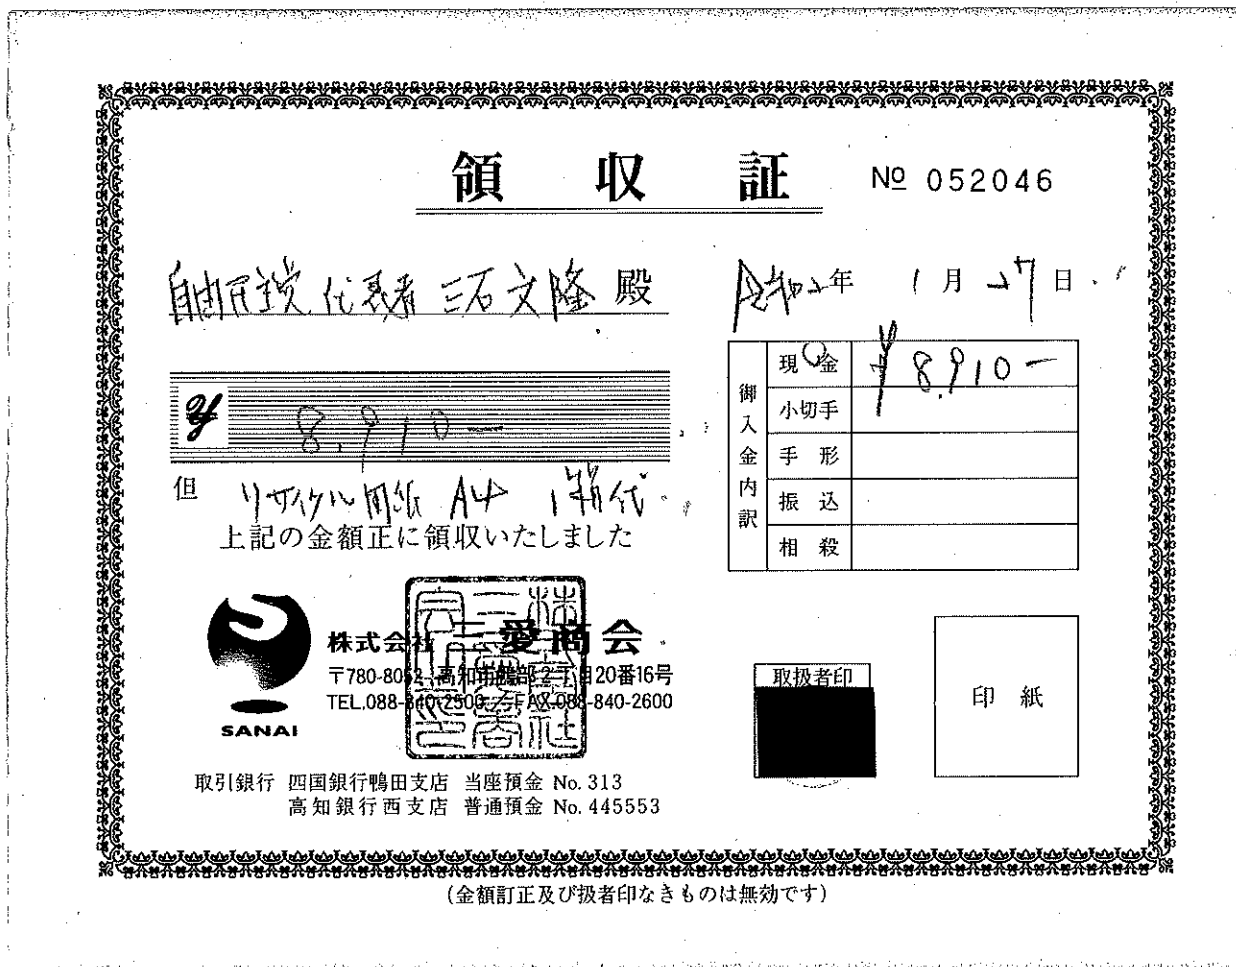 領収証
№ 052046
自由民主党 代表者 三石文隆 殿
令和2年 1月 27日
¥ 8,910-
但 リサイクル用紙 A4 1箱代
上記の金額正に領収いたしました
御入金内訳
現金 ¥8,910-
小切手
手形
振込
相殺
SANAI
株式会社 三愛商会
〒780-8052 高知市鴨部2丁目20番16号
TEL.088-840-2500 FAX.088-840-2600
取扱者印
印紙
取引銀行 四国銀行鴨田支店 当座預金 No.313
高知銀行西支店 普通預金 No.445553
(金額訂正及び扱者印なきものは無効です)